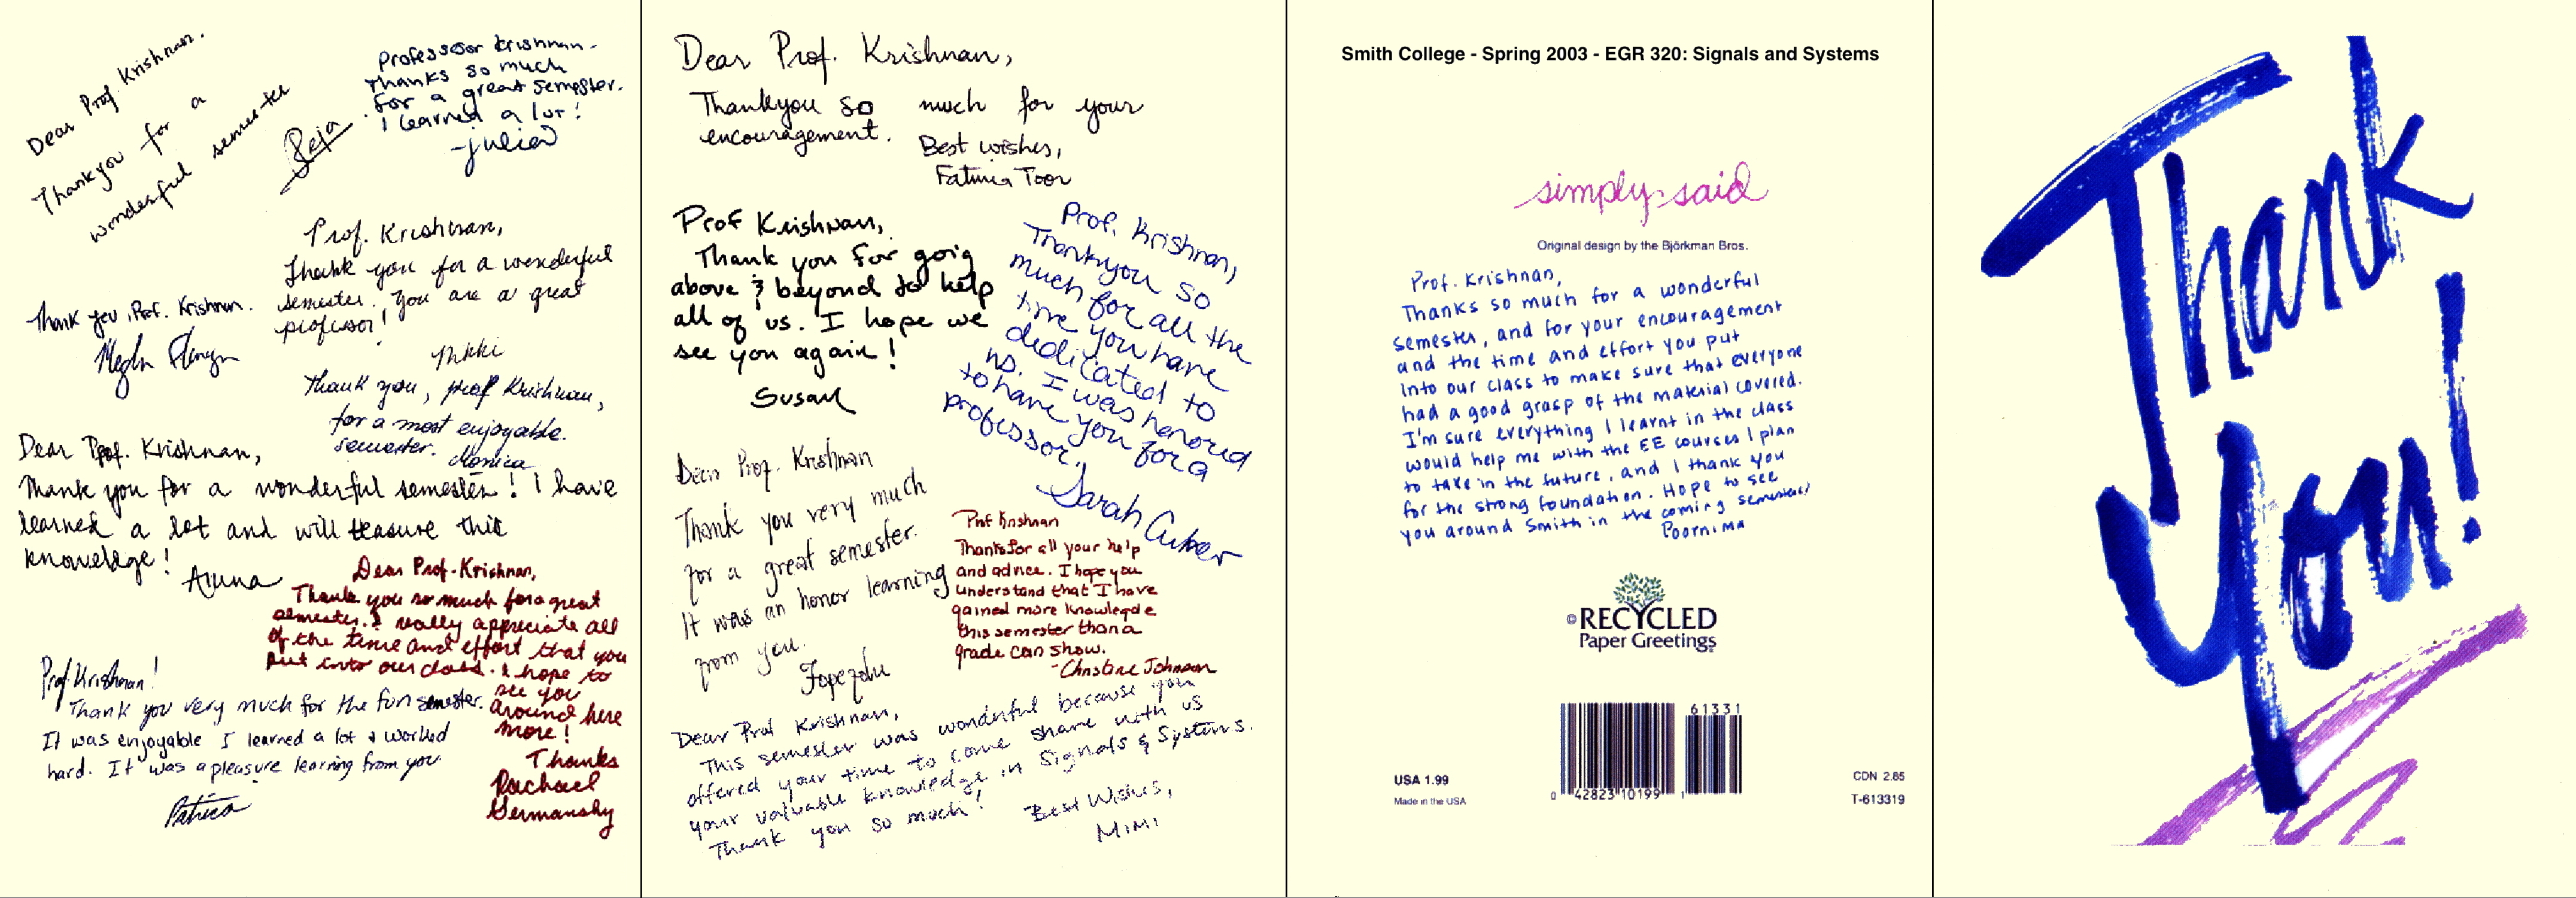 Dear Prof. Krishnan.
Thankyou for a
wonderful semester
Reja
Professor Krishnan -
Thanks so much
for a great semester.
I learned a lot!
-Julia
Prof. Krishnan,
Thank you for a wonderful
semester. You are a great
professor!
Nikki
Thank you, Prof. Krishnan.
Thank you, prof Krishnan,
for a most enjoyable
semester. Monica
Dear Prof. Krishnan,
Thank you for a wonderful semester! I have
learned a lot and will teasure this
knowelege!
Aruna
Dear Prof. Krishnan,
Thank you so much for a great
semester. I really appreciate all
of the time and effort that you
put into our class. I hope to
see you
around here
more!
Thanks
Rachael
Germansky
Prof. Krishnan!
Thank you very much for the fun semester.
It was enjoyable I learned a lot & worked
hard. It was a pleasure learning from you
Patrica
Dear Prof. Krishnan,
Thankyou so much for your
encouragement.
Best wishes,
Fatima Toor
Prof Krishnan,
Thank you for goig
above & beyond to help
all of us. I hope we
see you again!
Susan
Prof. Krishnan,
Thankyou so
much for all the
time you have
dedicated to
us. I was honored
to have you for a
professor.
Sarah
Dear Prof. Krishnan
Thank you very much
for a great semester.
It was an honor learning
from you.
Prof Krishnan
Thanks for all your help
and advice. I hope you
understand that I have
gained more knowlegde
this semester than a
grade can show.
-Christine Johnson
Dear Prof Krishnan,
This semester was wonderful because you
offered your time to come share with us
your valuable knowledge in Signals & Systems.
Thank you so much!
Best Wishes,
MiMi
Smith College - Spring 2003 - EGR 320: Signals and Systems
simply said
Original design by the Björkman Bros.
Prof. Krishnan,
Thanks so much for a wonderful
semester, and for your encouragement
and the time and effort you put
into our class to make sure that everyone
had a good grasp of the material covered.
I'm sure everything I learnt in the class
would help me with the EE courses I plan
to take in the future, and I thank you
for the strong foundation. Hope to see
you around Smith in the coming semesters!
Poornima
© RECYCLED
Paper Greetings
61331
USA 1.99
Made in the USA
0 42823 10199 1
CDN 2.85
T-613319
Thank
You!